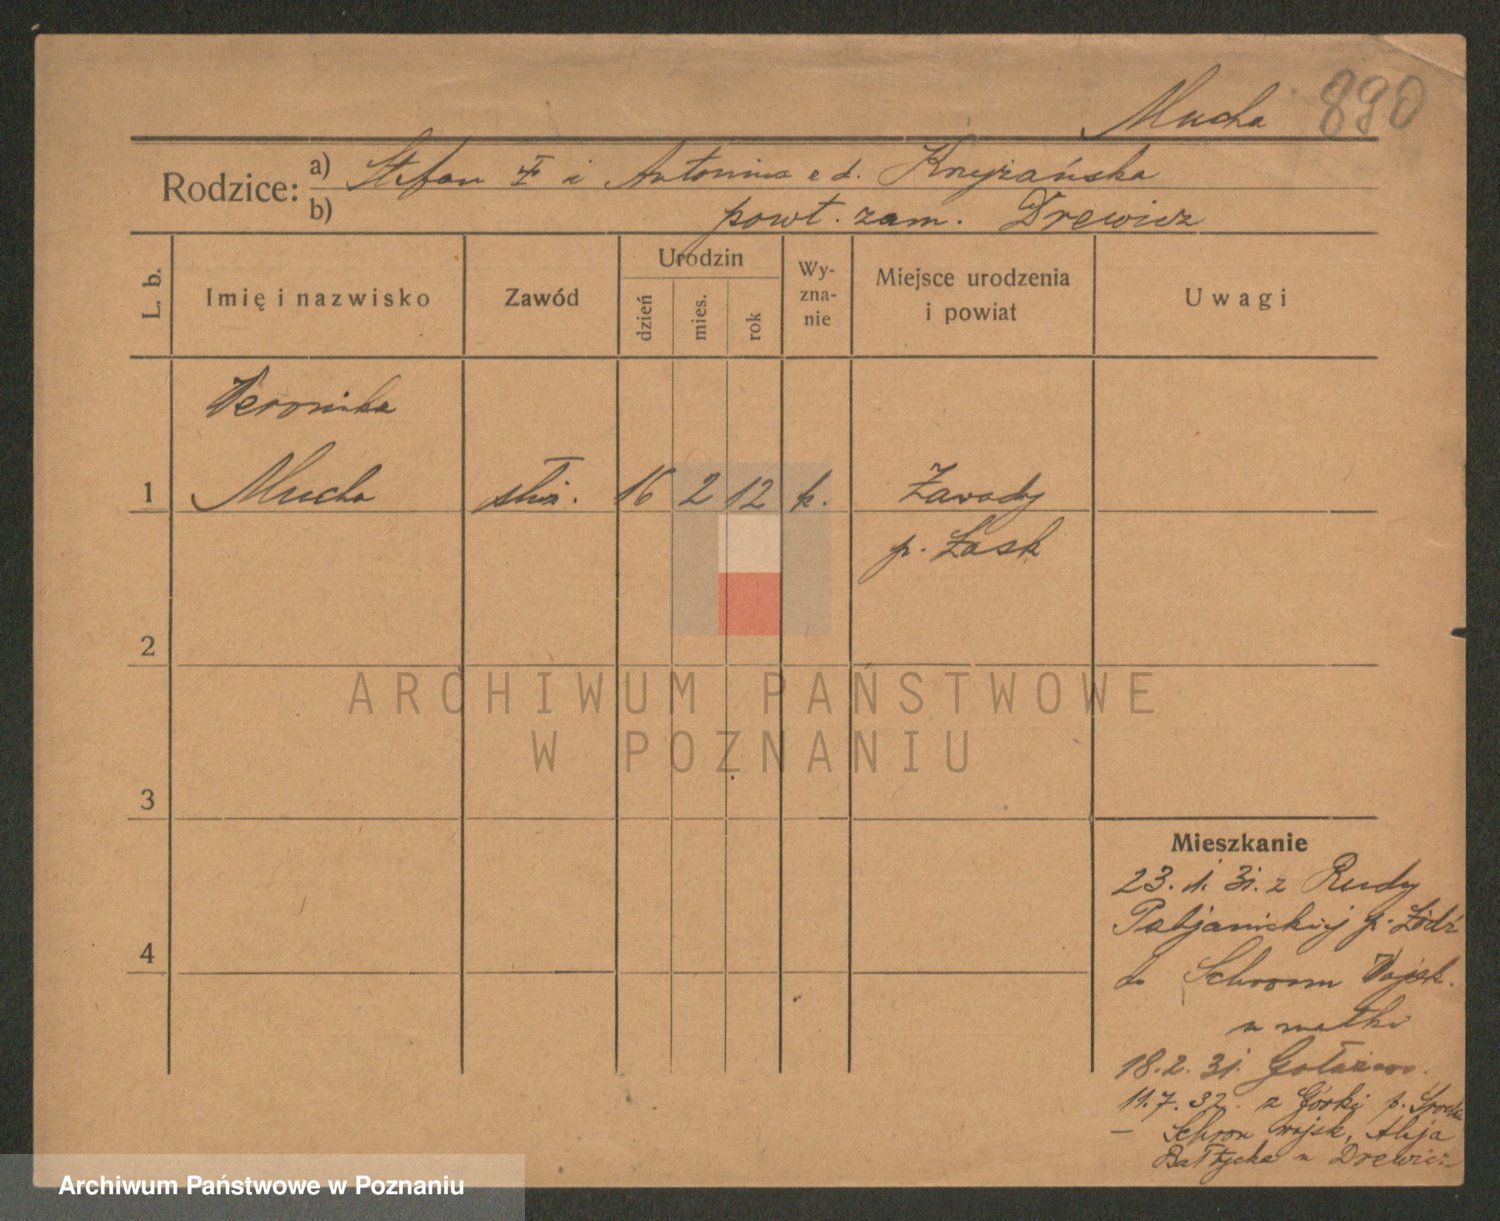 Mucha 890
Rodzice: a) Stefan i Antonina z d.
b) powt. zam. Drewicz
L. b.
Imię i nazwisko
Zawód
Urodzin
dzień
mies.
rok
Wy-
zna-
nie
Miejsce urodzenia
i powiat
Uwagi
Weronika
1 Mucha służ. 16 2 12 k. Zawady
p. Łask
2
ARCHIWUM PAŃSTWOWE
W POZNANIU
3
Mieszkanie
23. 1. 31. z Rudy
Pabjanickiej p. Łódź
do Schronu Wojsk.
u matki
4
18. 2. 31.
11. 7. 32. z Górki p.
— Schron wojsk. Aleja
Bałtycka u Drewicz
Archiwum Państwowe w Poznaniu